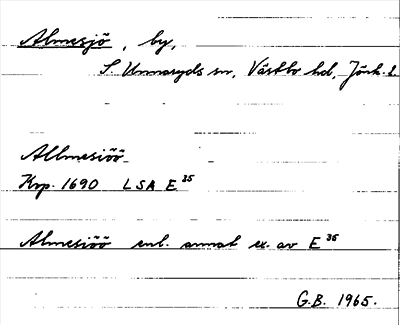 Almesjö, by,
S. Unnaryds sn, Västbo hd, Jönk. l.
Allmesiöö
Krp. 1690 LSA E 35
Almesiöö enl. annat ex. av E 36
G.B. 1965.